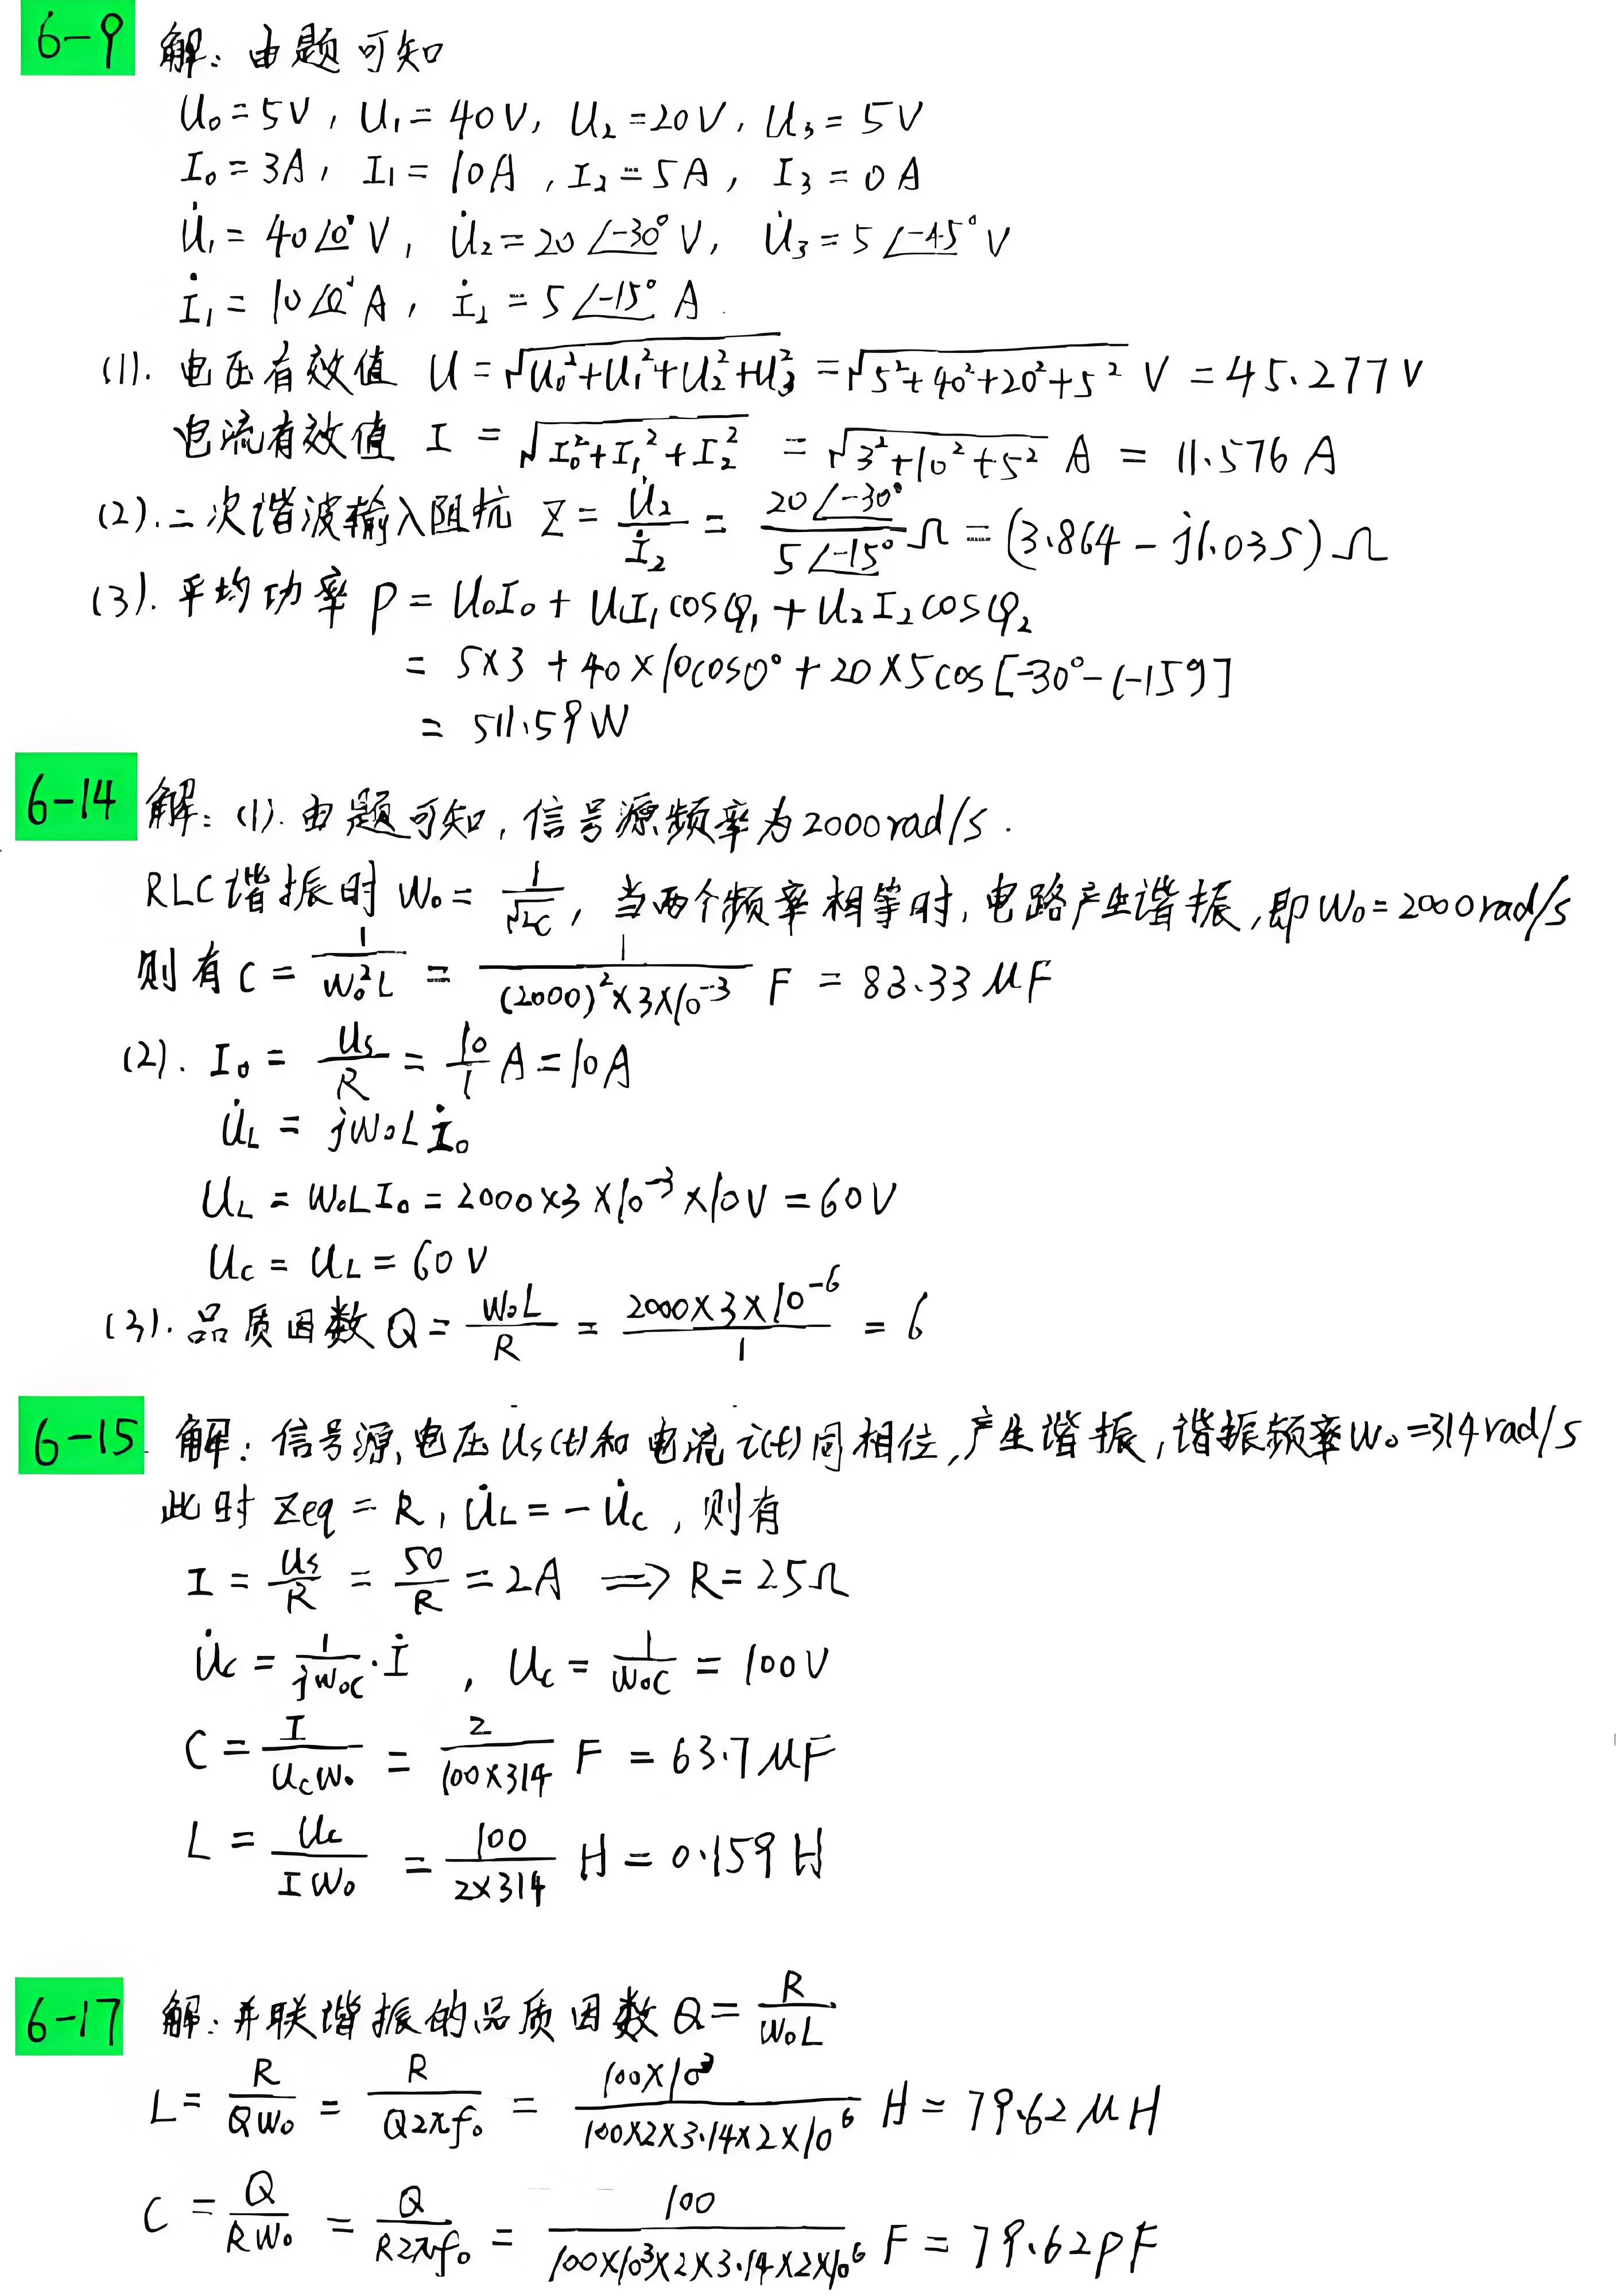 6-9 解：由题可知
U₀=5V，U₁=40V，U₂=20V，U₃=5V
I₀=3A，I₁=10A，I₂=5A，I₃=0A
U̇₁=40∠0°V，U̇₂=20∠-30°V，U̇₃=5∠-45°V
İ₁=10∠0°A，İ₂=5∠-15°A.
(1).电压有效值 U=√(U₀²+U₁²+U₂²+U₃²)=√(5²+40²+20²+5²) V=45.277V
电流有效值 I=√(I₀²+I₁²+I₂²)=√(3²+10²+5²) A=11.576A
(2).二次谐波输入阻抗 Z=U̇₂/İ₂=20∠-30°/5∠-15° Ω=(3.864-j1.035)Ω
(3).平均功率 P=U₀I₀+U₁I₁cosφ₁+U₂I₂cosφ₂
=5×3+40×10cos0°+20×5cos[-30°-(-15°)]
=511.59W
6-14 解：(1).由题可知，信号源频率为2000rad/s.
RLC谐振时 W₀=1/√LC，当两个频率相等时，电路产生谐振，即W₀=2000rad/s
则有C=1/(W₀²L)=1/((2000)²×3×10⁻³) F=83.33μF
(2).I₀=Us/R=10/1 A=10A
U̇L=jW₀Lİ₀
UL=W₀LI₀=2000×3×10⁻³×10V=60V
Uc=UL=60V
(3).品质因数Q=W₀L/R=2000×3×10⁻⁶/1=6
6-15 解：信号源电压Us(t)和电流i(t)同相位，产生谐振，谐振频率W₀=314rad/s
此时Zeq=R，U̇L=-U̇c，则有
I=Us/R=50/R=2A ⟹ R=25Ω
U̇c=1/(jW₀C)·İ，Uc=1/(W₀C)=100V
C=I/(UcW₀)=2/(100×314) F=63.7μF
L=Uc/(IW₀)=100/(2×314) H=0.159H
6-17 解：并联谐振的品质因数Q=R/(W₀L)
L=R/(QW₀)=R/(Q2πf₀)=100×10³/(100×2×3.14×2×10⁶) H=79.62μH
C=Q/(RW₀)=Q/(R2πf₀)=100/(100×10³×2×3.14×2×10⁶) F=79.62pF